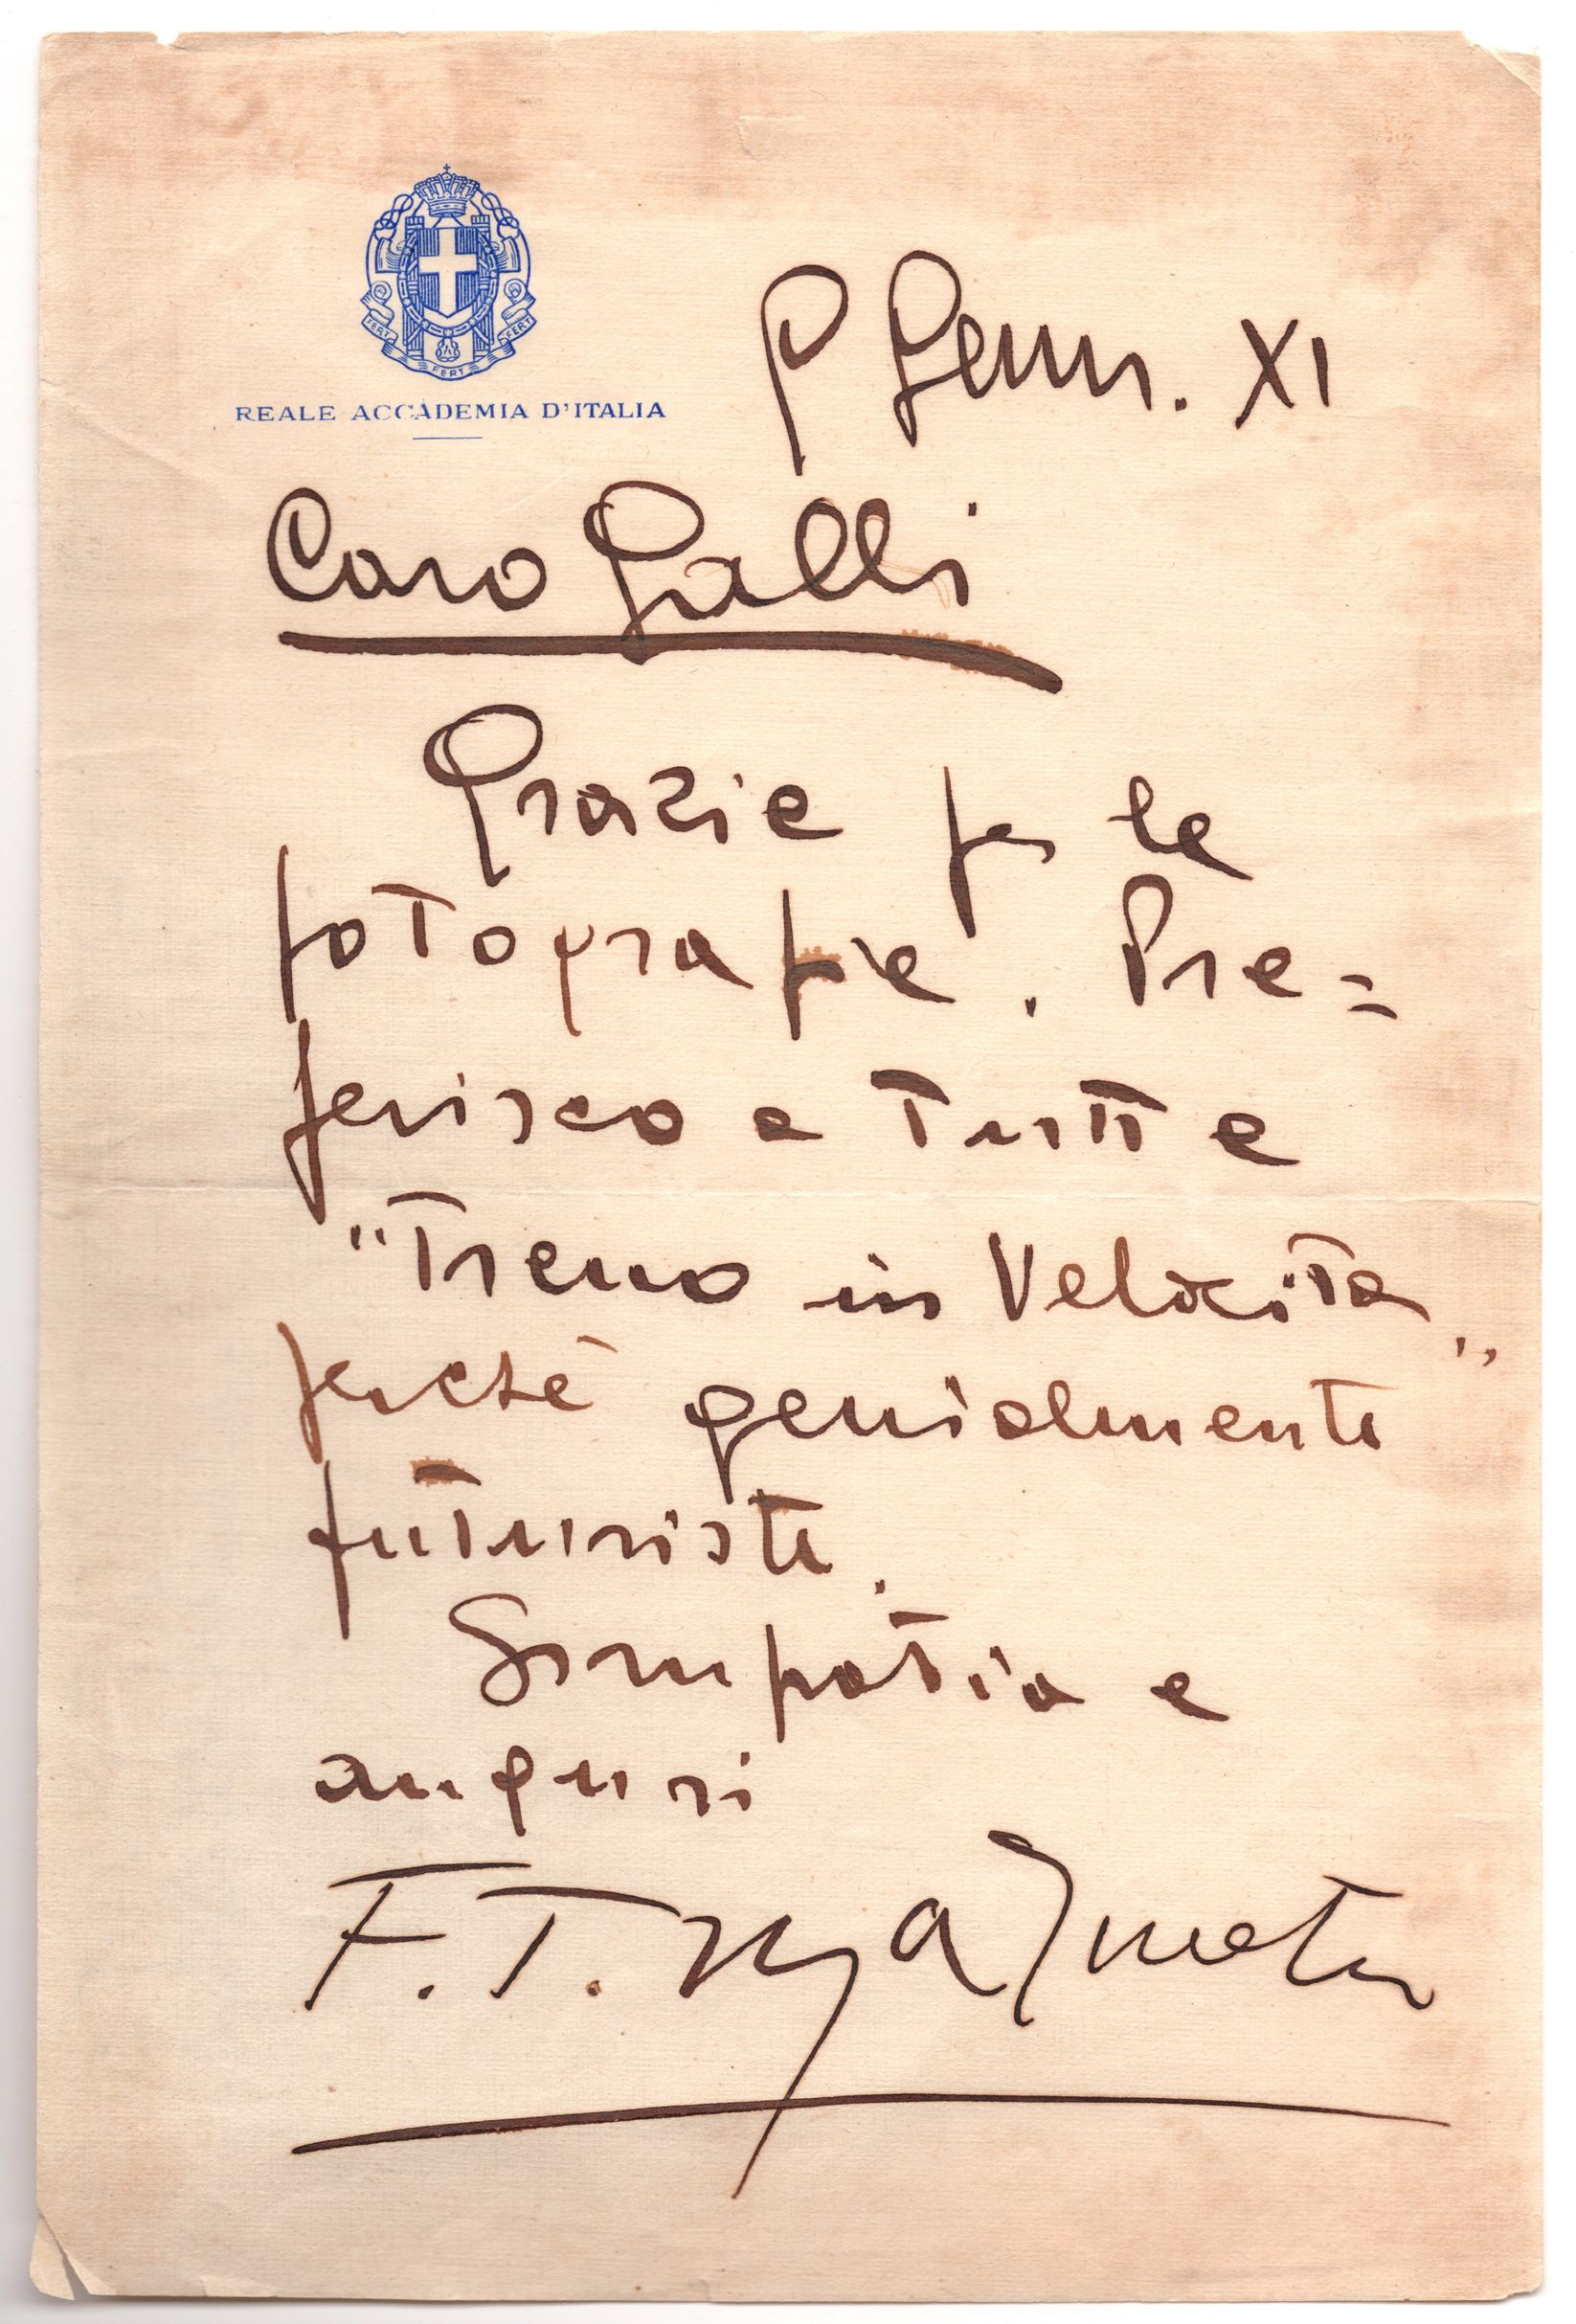 FERT FERT FERT
REALE ACCADEMIA D'ITALIA
9 Genn. XI
Caro Galli
Grazie per le
fotografie. Pre=
ferisco a tutte
"Treno in Velocità"
perchè genialmente
futurista.
Simpatia e
auguri
F. T. Marinetti